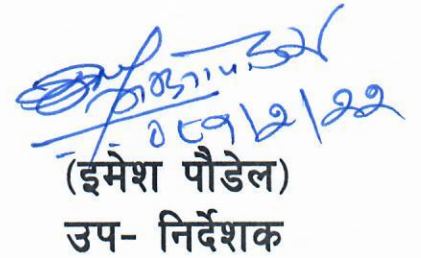 ०८१/२/२२
(इमेश पौडेल)
उप- निर्देशक